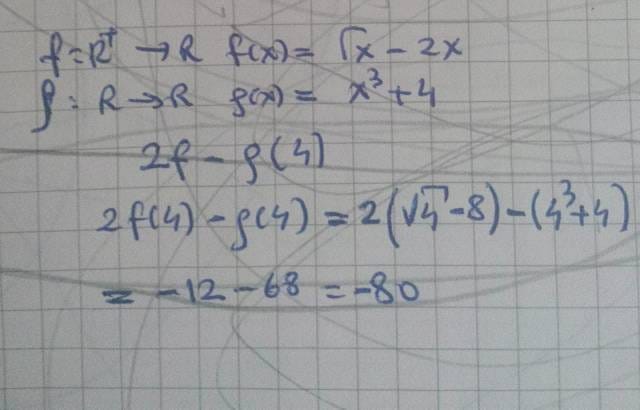 f: R⁺ → R f(x) = √x - 2x
g: R → R g(x) = x³ + 4
2f - g(4)
2f(4) - g(4) = 2(√4 - 8) - (4³ + 4)
= -12 - 68 = -80